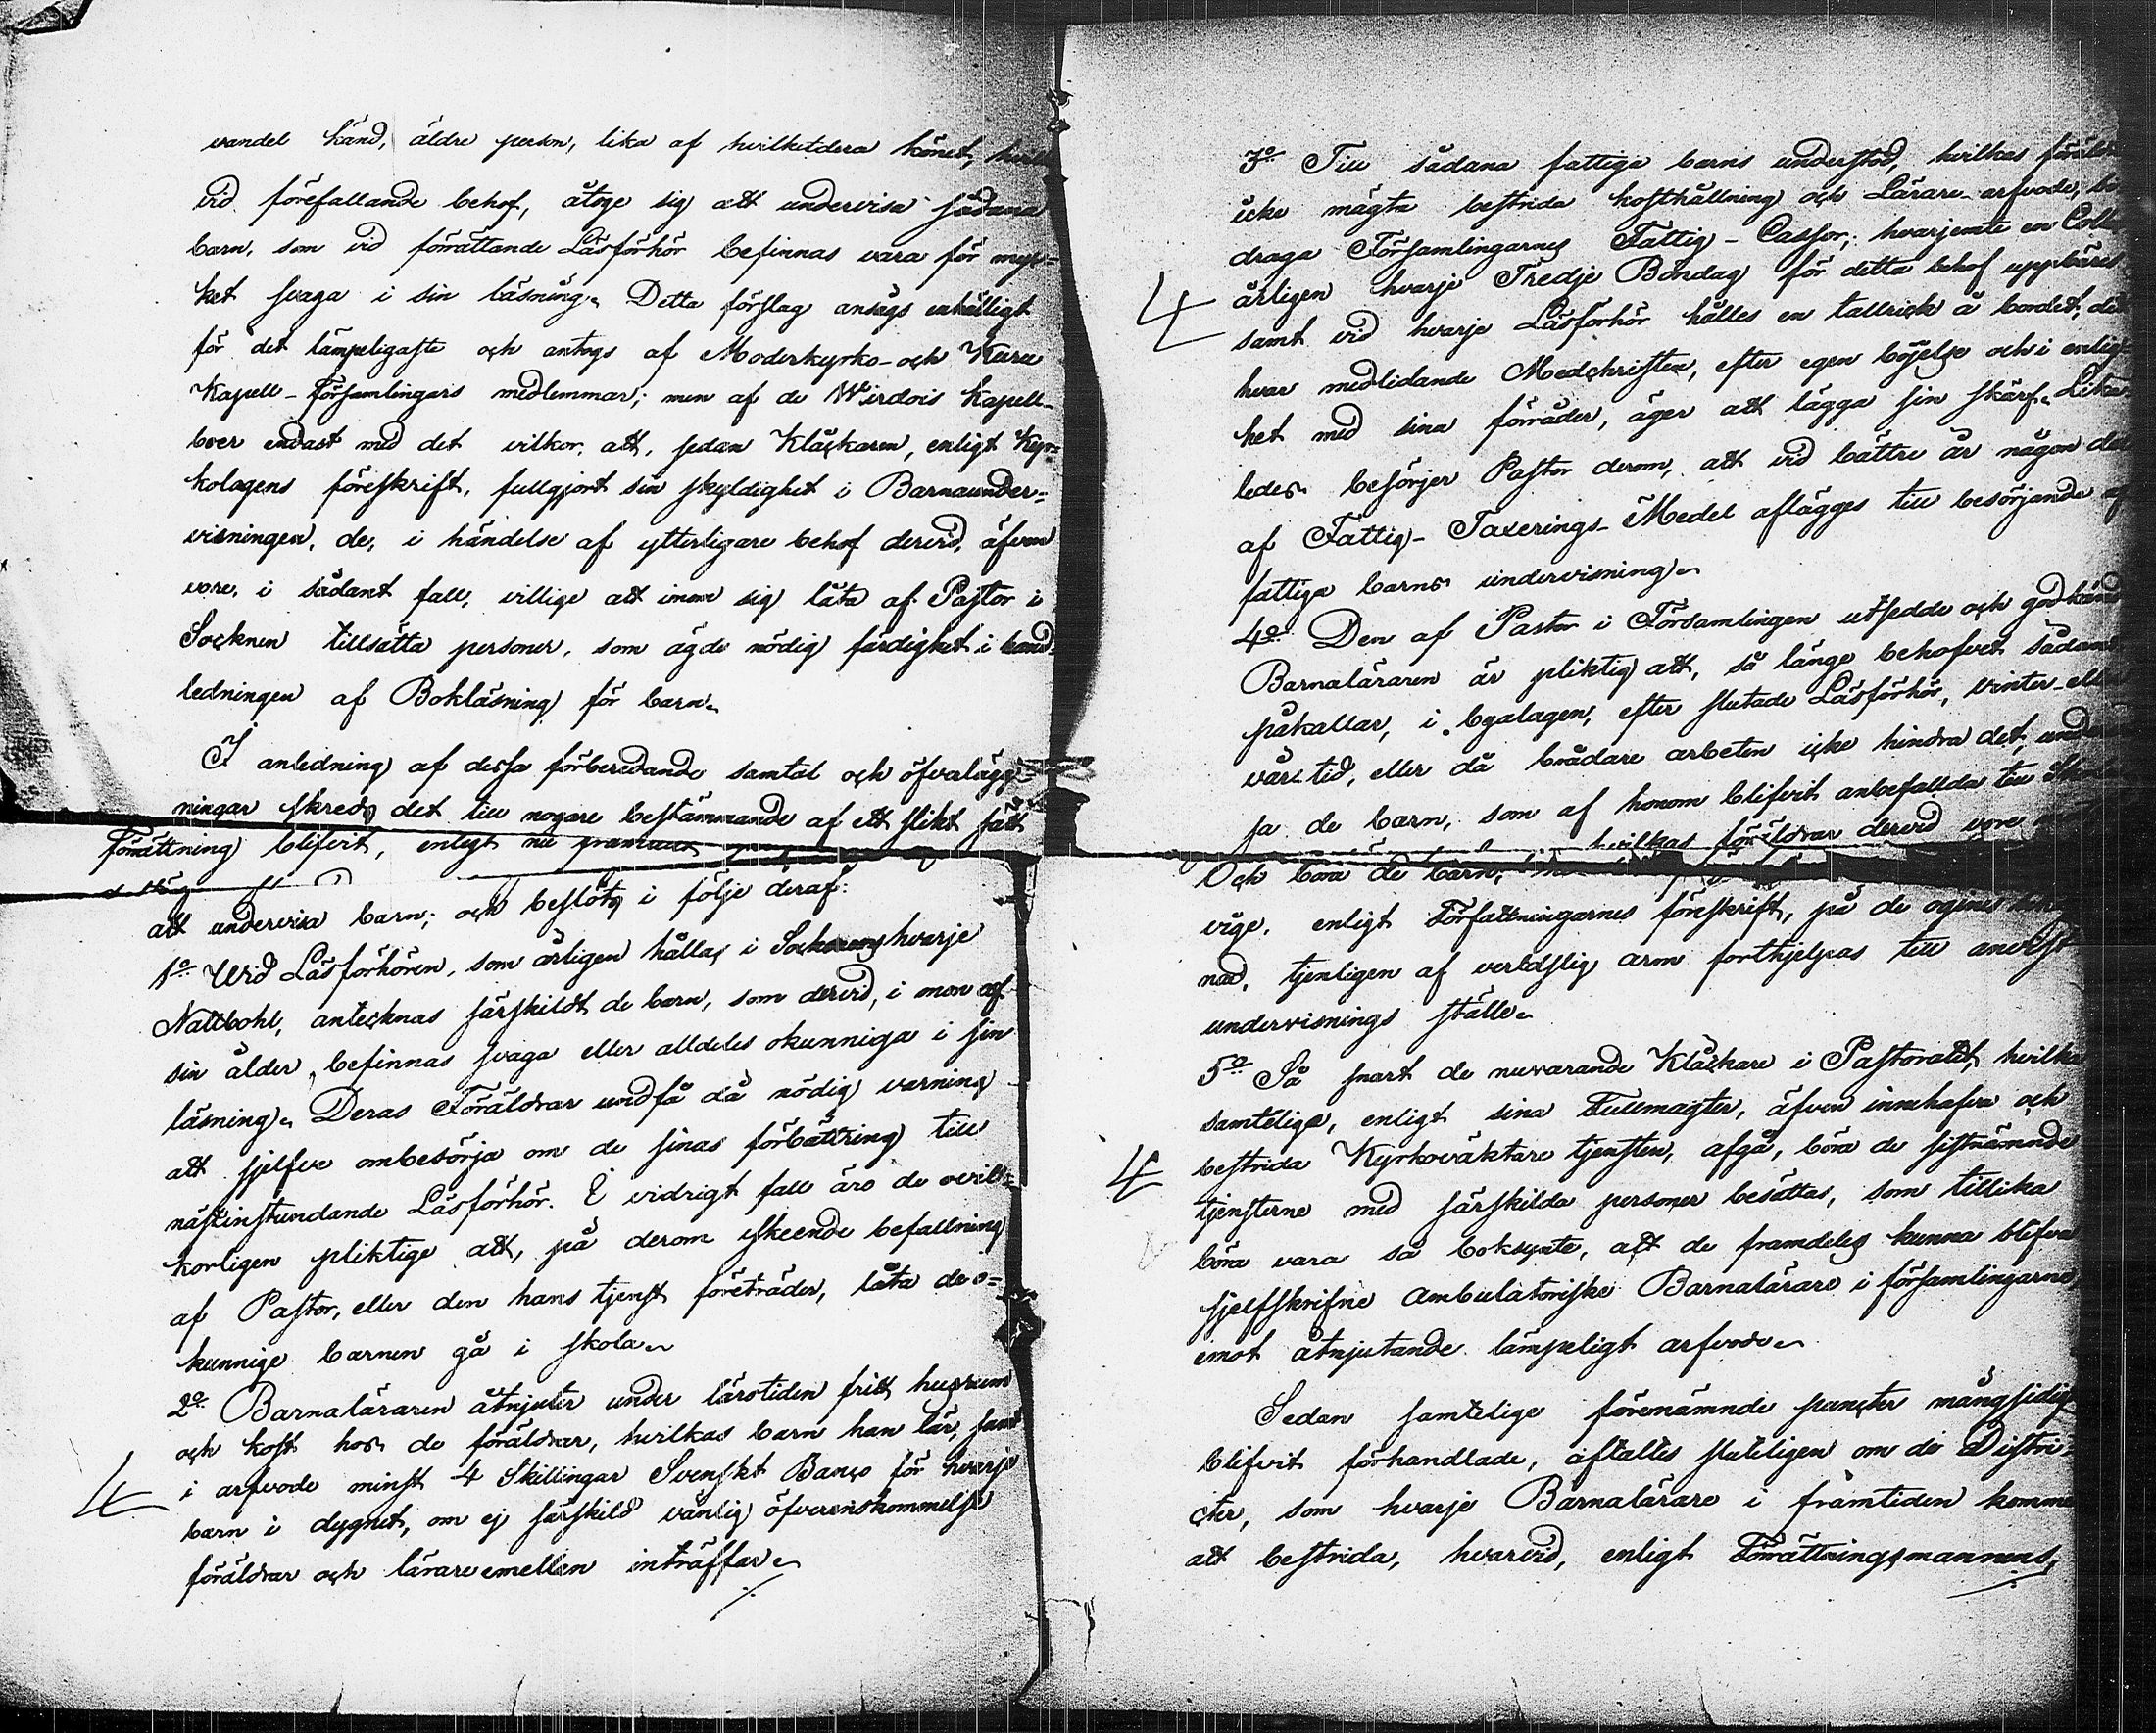 vandel känd, äldre person, lika af hvilketdera könet,
vid förefallande behof, åtoge sig att undervisa sådana
barn, som vid förrättande Läsförhör befinnas vara för myc=
ket svaga i sin läsning. Detta förslag ansågs enhälligt
för det lämpeligaste och antogs af Moderkyrko- och Kuru
Kapell-Församlingars medlemmar; men af de Wirdois Kapell-
boer endast med det vilkor, att, sedan Klåckaren, enligt Kyr-
kolagens föreskrift, fullgjort sin skyldighet i Barnaunder=
visningen, de, i händelse af ytterligare behof dervid, äfven
vore, i sådant fall, villige att inom sig låta af Pastor i
Socknen tillsätta personer, som ägde nödig färdighet i hand-
ledningen af Bokläsning för barn.
I anledning af dessa förberedande samtal och öfverlägg-
ningar skreds det till nogare bestämmande af ett slikt sätt
Förrättning blifvit, enligt nu
att undervisa barn; och beslöts i följe deraf:
1o Wid Läsförhören, som årligen hållas i Socknens hvarje
Nattbohl, antecknas särskildt de barn, som dervid, i mon af
sin ålder, befinnas svaga eller alldeles okunniga i sin
läsning. Deras Föräldrar undfå då nödig varning
att sjelfve ombesörja om de sinas förbättring till
nästinstundande Läsförhör. I vidrigt fall äro de ovill-
korligen pliktige att, på derom skeende befallning
af Pastor, eller den hans tjenst företräder, låta de o=
kunnige barnen gå i skola.
2o Barnaläraren åtnjuter under lärotiden fritt husrum
och kost hos de föräldrar, hvilkas barn han lär, samt
i arfvode minst 4 Skillingar Svenskt Banco för hvarje
barn i dygnet, om ej särskild vänlig öfverenskommelse
föräldrar och lärare emellan inträffar.
3o Till sådana fattiga barns understöd, hvilkas
icke mägta bestrida kosthållning och Lärare-arfvode,
draga Församlingarnes Fattig-Cassor; hvarjemte en
årligen hvarje Tredje Böndag för detta behof uppbäres
samt vid hvarje Läsförhör hålles en tallrick å bordet,
hvar medlidande Medchristen, efter egen böjelse och i enlig-
het med sina förråder, äger att lägga sin skärf. Lika-
ledes besörjer Pastor derom, att vid bättre år någon del
af Fattig-Taxerings-Medel aflägges till besörjande af
fattiga barns undervisning.
4o Den af Pastor i Församlingen utsedde och godkände
Barnaläraren är pliktig att, så länge behofvet sådant
påkallar, i byalagen, efter slutade Läsförhör, vinter-
vårs tid, eller då brådare arbeten icke hindra det,
sa de barn, som af honom blifvit anbefallda till
hvilkas föräldrar dervid vore
Och böra de barn,
vige, enligt Författningarnes föreskrift, på de
nad, tjenligen af verldslig arm forthjelpas till anvist
undervisnings ställe.
5o Så snart de nuvarande Klåckare i Pastoratet, hvilka
samtelige, enligt sina Fullmagter, äfven innehafva och
bestrida Kyrkoväktare tjensten, afgå, böra de sistnämnde
tjensterne med särskilda personer besättas, som tillika
böra vara så boksynte, att de framdeles kunna blifva
sjelfskrifne ambulatoriske Barnalärare i församlingarne
emot åtnjutande lämpeligt arfvode.
Sedan samtelige förenämnde puncter mångsidigt
blifvit förhandlade, aftaltes sluteligen om de Distri-
cter, som hvarje Barnalärare i framtiden komme
att bestrida, hvarvid, enligt Förrättningsmannens,